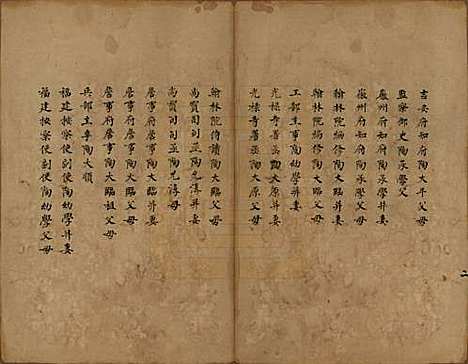 吉安府知府陶大年父母
監察御史陶承學父
徽州府知府陶承學并妻
徽州府知府陶承學父母
翰林院編修陶大臨并妻
翰林院編修陶大臨父母
工部主事陶幼學并妻
光祿寺署丞陶大原并妻
光祿寺署丞陶大原父母
翰林院侍讀陶大臨父母
尚寶司司丞陶允淳并妻
尚寶司司丞陶允淳母
詹事府詹事陶大臨并妻
詹事府詹事陶大臨父母
詹事府詹事陶大臨祖父母
兵部主事陶大順
福建按察使副使陶幼學并妻
福建按察使副使陶幼學父母
二